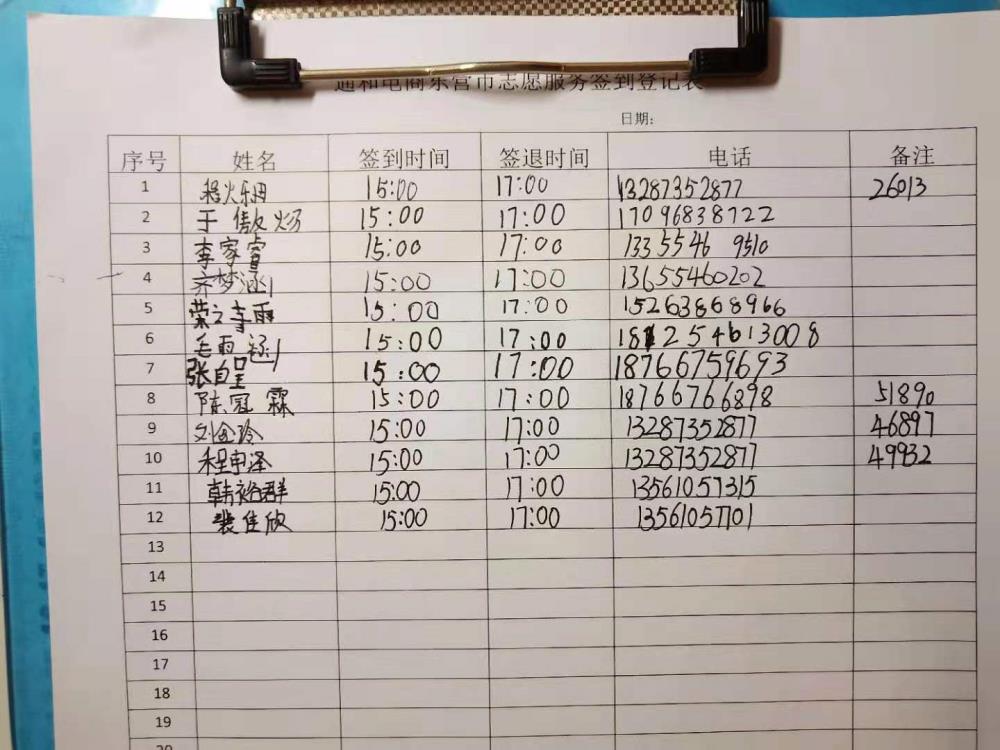 通和电商东营市志愿服务签到登记表
日期:
序号 姓名 签到时间 签退时间 电话 备注
1 15:00 17:00 13287352877 26013
2 于傲炀 15:00 17:00 17096838722
3 李家睿 15:00 17:00 1335546 9510
4 齐梦涵 15:00 17:00 13655460202
5 荣之幸雨 15:00 17:00 15263868966
6 毛雨涵 15:00 17:00 18 254613008
7 张自呈 15:00 17:00 18766759693
8 陈冠霖 15:00 17:00 18766766898 51890
9 刘金玲 15:00 17:00 13287352877 46897
10 程申泽 15:00 17:00 13287352877 49932
11 韩裕群 15:00 17:00 13561057315
12 裴佳欣 15:00 17:00 13561057101
13
14
15
16
17
18
19
20